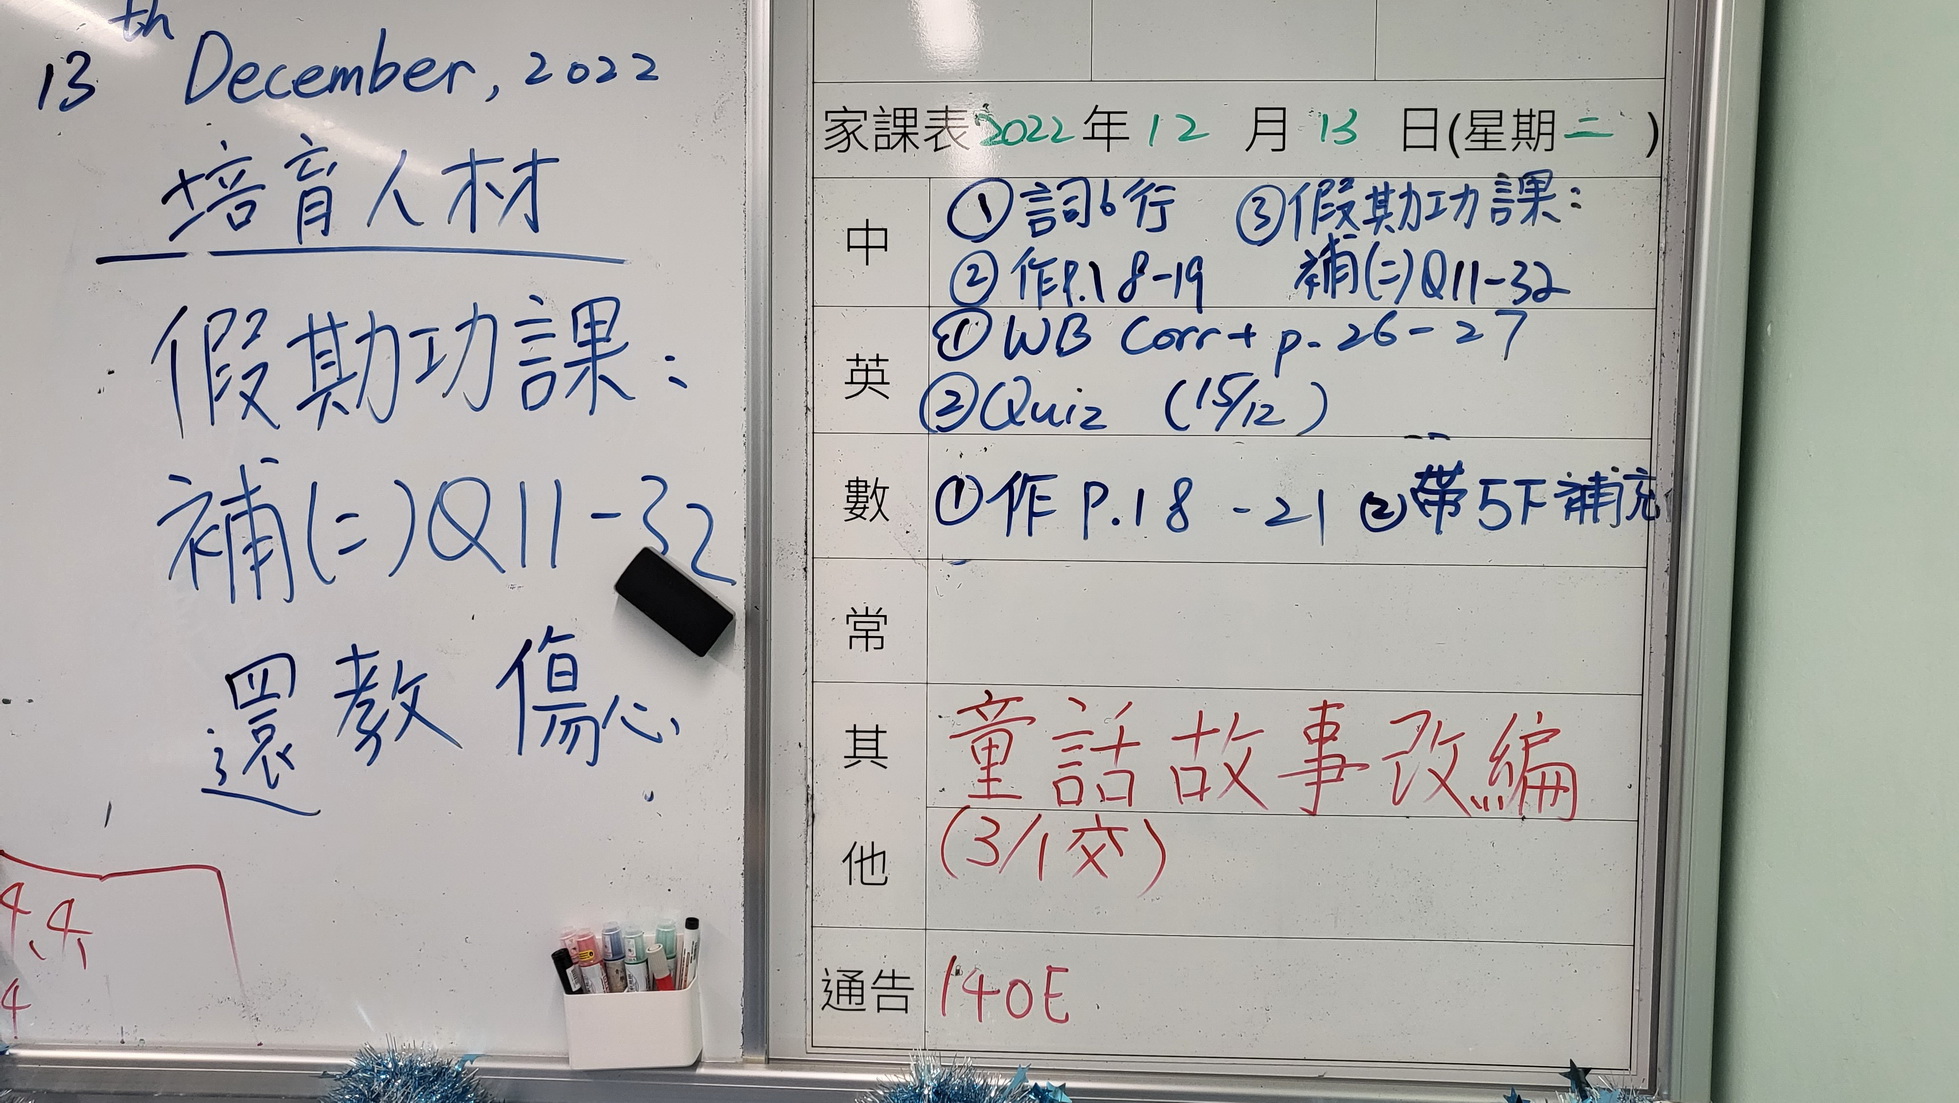 13th December, 2022
培育人材
假期功課：
補(二)Q11-32
還 教 傷心
4,4,
4
家課表2022年12月13日(星期二)
中
①詞6行 ③假期功課：
②作P.18-19 補(二)Q11-32
英
①WB Corr + p. 26-27
②Quiz (15/12)
數
①作P.18-21 ②帶5下補充
常
其他
童話故事改編
(3/1交)
通告 140E